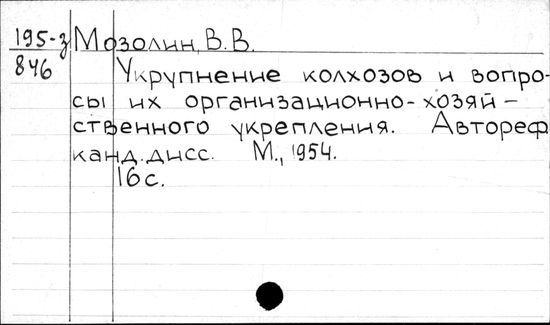 195-з Мозолин, В.В.
846
Укрупнение колхозов и вопро-
сы их организационно-хозяй-
ственного укрепления. Автореф
канд.дисс. М., 1954.
16 с.